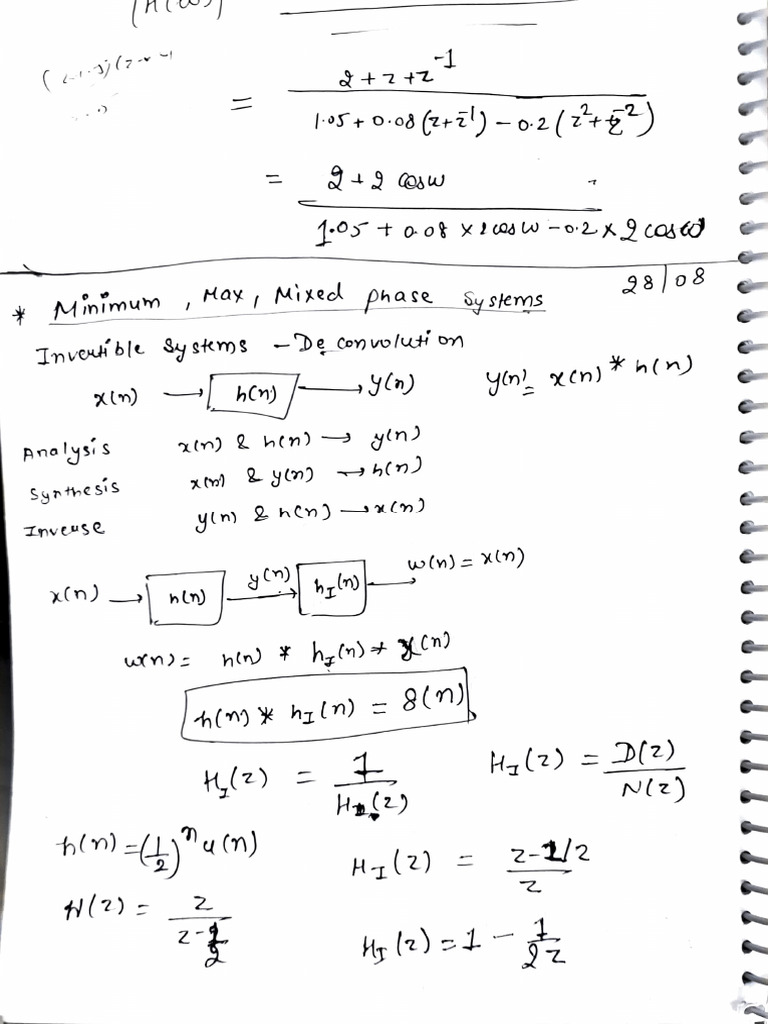 (H(ω)
= 2+z+z^-1 / 1.05+0.08(z+z^-1) - 0.2(z^2+z^-2)
= 2+2 cosω / 1.05 + 0.08 × 2cosω - 0.2 × 2cosω
28/08
* Minimum, Max, Mixed phase Systems
Invertible Systems - De convolution
x(n) → h(n) → y(n) y(n) = x(n) * h(n)
Analysis x(n) & h(n) → y(n)
Synthesis x(n) & y(n) → h(n)
Inverse y(n) & h(n) → x(n)
x(n) → h(n) y(n) → h_I(n) → w(n) = x(n)
w(n) = h(n) * h_I(n) * x(n)
h(n) * h_I(n) = δ(n)
H_I(z) = 1 / H(z) H_I(z) = D(z) / N(z)
h(n) = (1/2)^n u(n) H_I(z) = z-1/2 / z
H(z) = z / z-1/2 H_I(z) = 1 - 1/2z